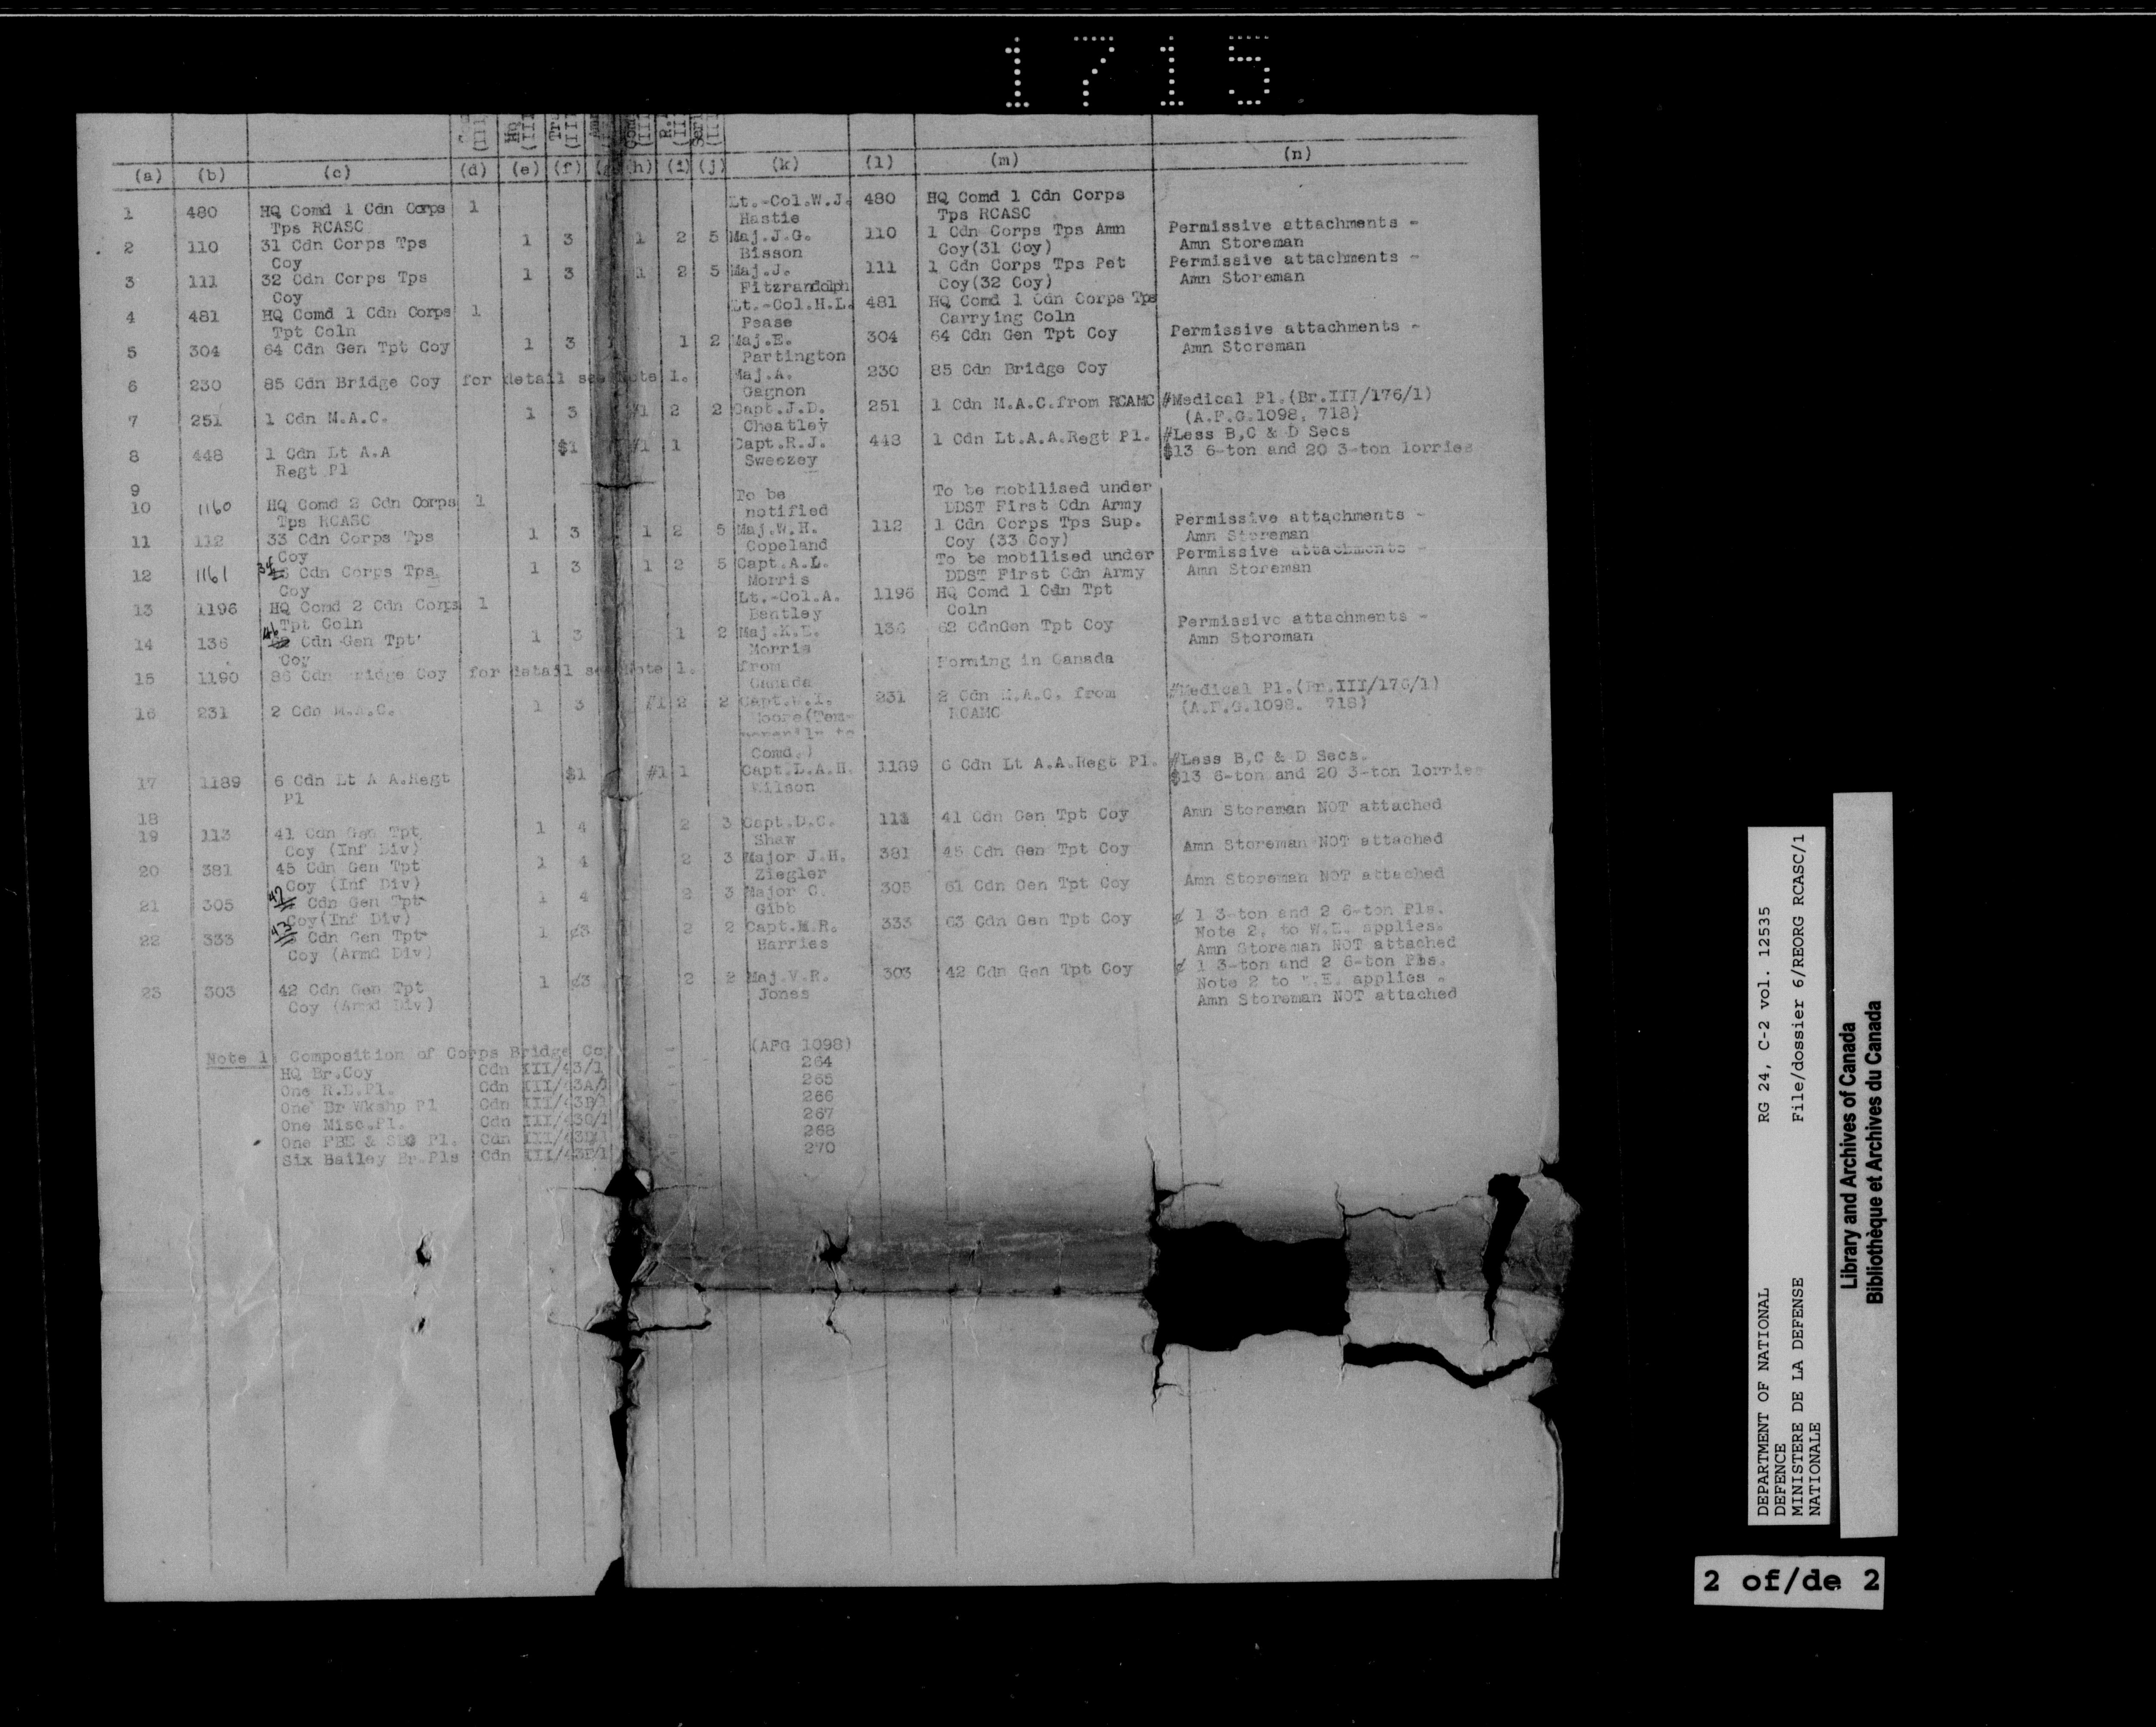 1715
(a) (b) (c) (d) (e) (f) (h) (i) (j) (k) (l) (m) (n)
1 480 HQ Comd 1 Cdn Corps 1 Lt.-Col.W.J. 480 HQ Comd 1 Cdn Corps
Tps RCASC Hastie Tps RCASC
2 110 31 Cdn Corps Tps 1 3 1 2 5 Maj.J.G. 110 1 Cdn Corps Tps Amn Permissive attachments -
Coy Bisson Coy(31 Coy) Amn Storeman
3 111 32 Cdn Corps Tps 1 3 1 2 5 Maj.J. 111 1 Cdn Corps Tps Pet Permissive attachments -
Coy Fitzrandolph Coy(32 Coy) Amn Storeman
4 481 HQ Comd 1 Cdn Corps 1 Lt.-Col.H.L. 481 HQ Comd 1 Cdn Corps Tps
Tpt Coln Pease Carrying Coln
5 304 64 Cdn Gen Tpt Coy 1 3 1 2 Maj.E. 304 64 Cdn Gen Tpt Coy Permissive attachments -
Partington Amn Storeman
6 230 85 Cdn Bridge Coy for detail see Note 1. Maj.A. 230 85 Cdn Bridge Coy
Gagnon
7 251 1 Cdn M.A.C. 1 3 #1 2 2 Capt.J.D. 251 1 Cdn M.A.C.from RCAMC #Medical Pl.(Br.III/176/1)
Cheatley (A.F.G.1098, 718)
8 448 1 Cdn Lt A.A $1 #1 1 Capt.R.J. 448 1 Cdn Lt.A.A.Regt Pl. #Less B,C & D Secs
Regt Pl Sweezey $13 6-ton and 20 3-ton lorries
9
10 1160 HQ Comd 2 Cdn Corps 1 To be To be mobilised under
Tps RCASC notified DDST First Cdn Army
11 112 33 Cdn Corps Tps 1 3 1 2 5 Maj.W.H. 112 1 Cdn Corps Tps Sup. Permissive attachments -
Coy Copeland Coy (33 Coy) Amn Storeman
12 1161 34 Cdn Corps Tps 1 3 1 2 5 Capt.A.L. To be mobilised under Permissive attachments -
Coy Morris DDST First Cdn Army Amn Storeman
13 1196 HQ Comd 2 Cdn Corps 1 Lt.-Col.A. 1196 HQ Comd 1 Cdn Tpt
Tpt Coln Bentley Coln
14 136 46 Cdn Gen Tpt 1 3 1 2 Maj.K.E. 136 62 CdnGen Tpt Coy Permissive attachments -
Coy Morris Amn Storeman
15 1190 86 Cdn Bridge Coy for detail see Note 1. from Forming in Canada
Canada
16 231 2 Cdn M.A.C. 1 3 #1 2 2 231 2 Cdn M.A.C. from #Medical Pl.(Br.III/176/1)
Moore(Tem- RCAMC (A.F.G.1098. 718)
porarily to
Comd.)
17 1189 6 Cdn Lt A A.Regt $1 #1 1 Capt.L.A.H. 1189 6 Cdn Lt A.A.Regt Pl. #Less B,C & D Secs.
Pl Wilson $13 6-ton and 20 3-ton lorries
18
19 113 41 Cdn Gen Tpt 1 4 2 3 Capt.D.C. 113 41 Cdn Gen Tpt Coy Amn Storeman NOT attached
Coy (Inf Div) Shaw
20 381 45 Cdn Gen Tpt 1 4 2 3 Major J.H. 381 45 Cdn Gen Tpt Coy Amn Storeman NOT attached
Coy (Inf Div) Ziegler
21 305 42 Cdn Gen Tpt 1 4 2 3 Major C. 305 61 Cdn Gen Tpt Coy Amn Storeman NOT attached
Coy(Inf Div) Gibb
22 333 43 Cdn Gen Tpt 1 ¢3 2 2 Capt.M.R. 333 63 Cdn Gen Tpt Coy ¢ 1 3-ton and 2 6-ton Pls.
Coy (Armd Div) Harries Note 2, to W.E. applies.
Amn Storeman NOT attached
23 303 42 Cdn Gen Tpt 1 ¢3 2 2 Maj.V.R. 303 42 Cdn Gen Tpt Coy ¢ 1 3-ton and 2 6-ton Pls.
Coy (Armd Div) Jones Note 2 to W.E. applies.
Amn Storeman NOT attached
Note 1 Composition of Corps Bridge Coy - (AFG 1098)
HQ Br.Coy Cdn III/43/1 - 264
One R.E.Pl. Cdn III/43A/1 - 265
One Br Wkshp Pl Cdn III/43B/1 266
One Misc.Pl. Cdn III/43C/1 267
One FBE & Pl. Cdn III/43D/1 268
Six Bailey Br.Pls Cdn III/43E/1 270
DEPARTMENT OF NATIONAL RG 24, C-2 vol. 12535
DEFENCE
MINISTERE DE LA DEFENSE File/dossier 6/REORG RCASC/1
NATIONALE
Library and Archives of Canada
Bibliothèque et Archives du Canada
2 of/de 2